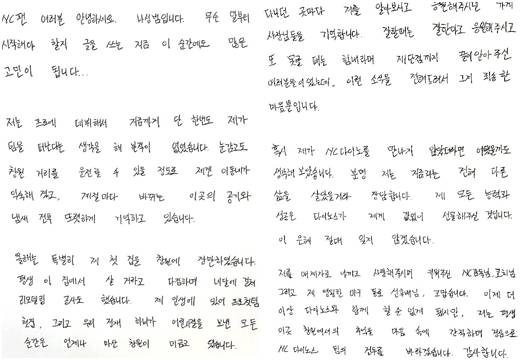 NC팬 여러분 안녕하세요. 나성범입니다. 무슨 말부터
시작해야 할지 글을 쓰는 지금 이 순간에도 많은
고민이 됩니다...
저는 프로에 데뷔해서 지금까지 단 한번도 제가
팀을 떠난다는 생각을 해 본적이 없었습니다. 눈감고도
창원 거리를 운전할 수 있을 정도로 제겐 이동네가
익숙해 졌고, 계절마다 바뀌는 이곳의 공기와
냄새 전부 또렷하게 기억하고 있습니다.
올해는 특별히 제 첫 집을 창원에 장만하였습니다.
평생 이 집에서 살 거라고 다짐하며 네달에 걸쳐
리모델링 공사도 했습니다. 제 인생에 있어 프로첫팀
현장, 그리고 우리 정재 하늬가 어린시절을 보낸 모든
순간은 언제나 마산 창원이 머금고 있습니다.
다니던 곳마다 저를 알아보시고 응원해주시던 가게
사장님들을 기억합니다. 잘할때는 잘한다고 응원해주시고
또 못할 때는 힘내라며 제 단점까지 끌어안아 주신
여러분들이었는데, 이런 소식을 전해드려서 그저 죄송한
마음뿐입니다.
혹시 제가 NC다이노스를 만나지 않았더라면 어땠을까도
생각해 보았습니다. 분명 저는 지금과는 전혀 다른
삶을 살았을거라 장담합니다. 제 모든 능력과
성공은 다이노스가 제게 값없이 선물해주신 것입니다.
이 은혜 절대 잊지 않겠습니다.
저를 메이저로 남기고 사랑해주시며 키워주신 NC감독님, 코치님
그리고 제 영원한 야구 동료 선후배님, 고맙습니다. 이제 더
이상 다이노스와 함께 할 순 없게 됐지만, 저는 평생
이곳 창원에서의 추억을 마음 속에 간직하며 진심으로
NC 다이노스 팀의 건투를 바라겠습니다. 감사합니다.